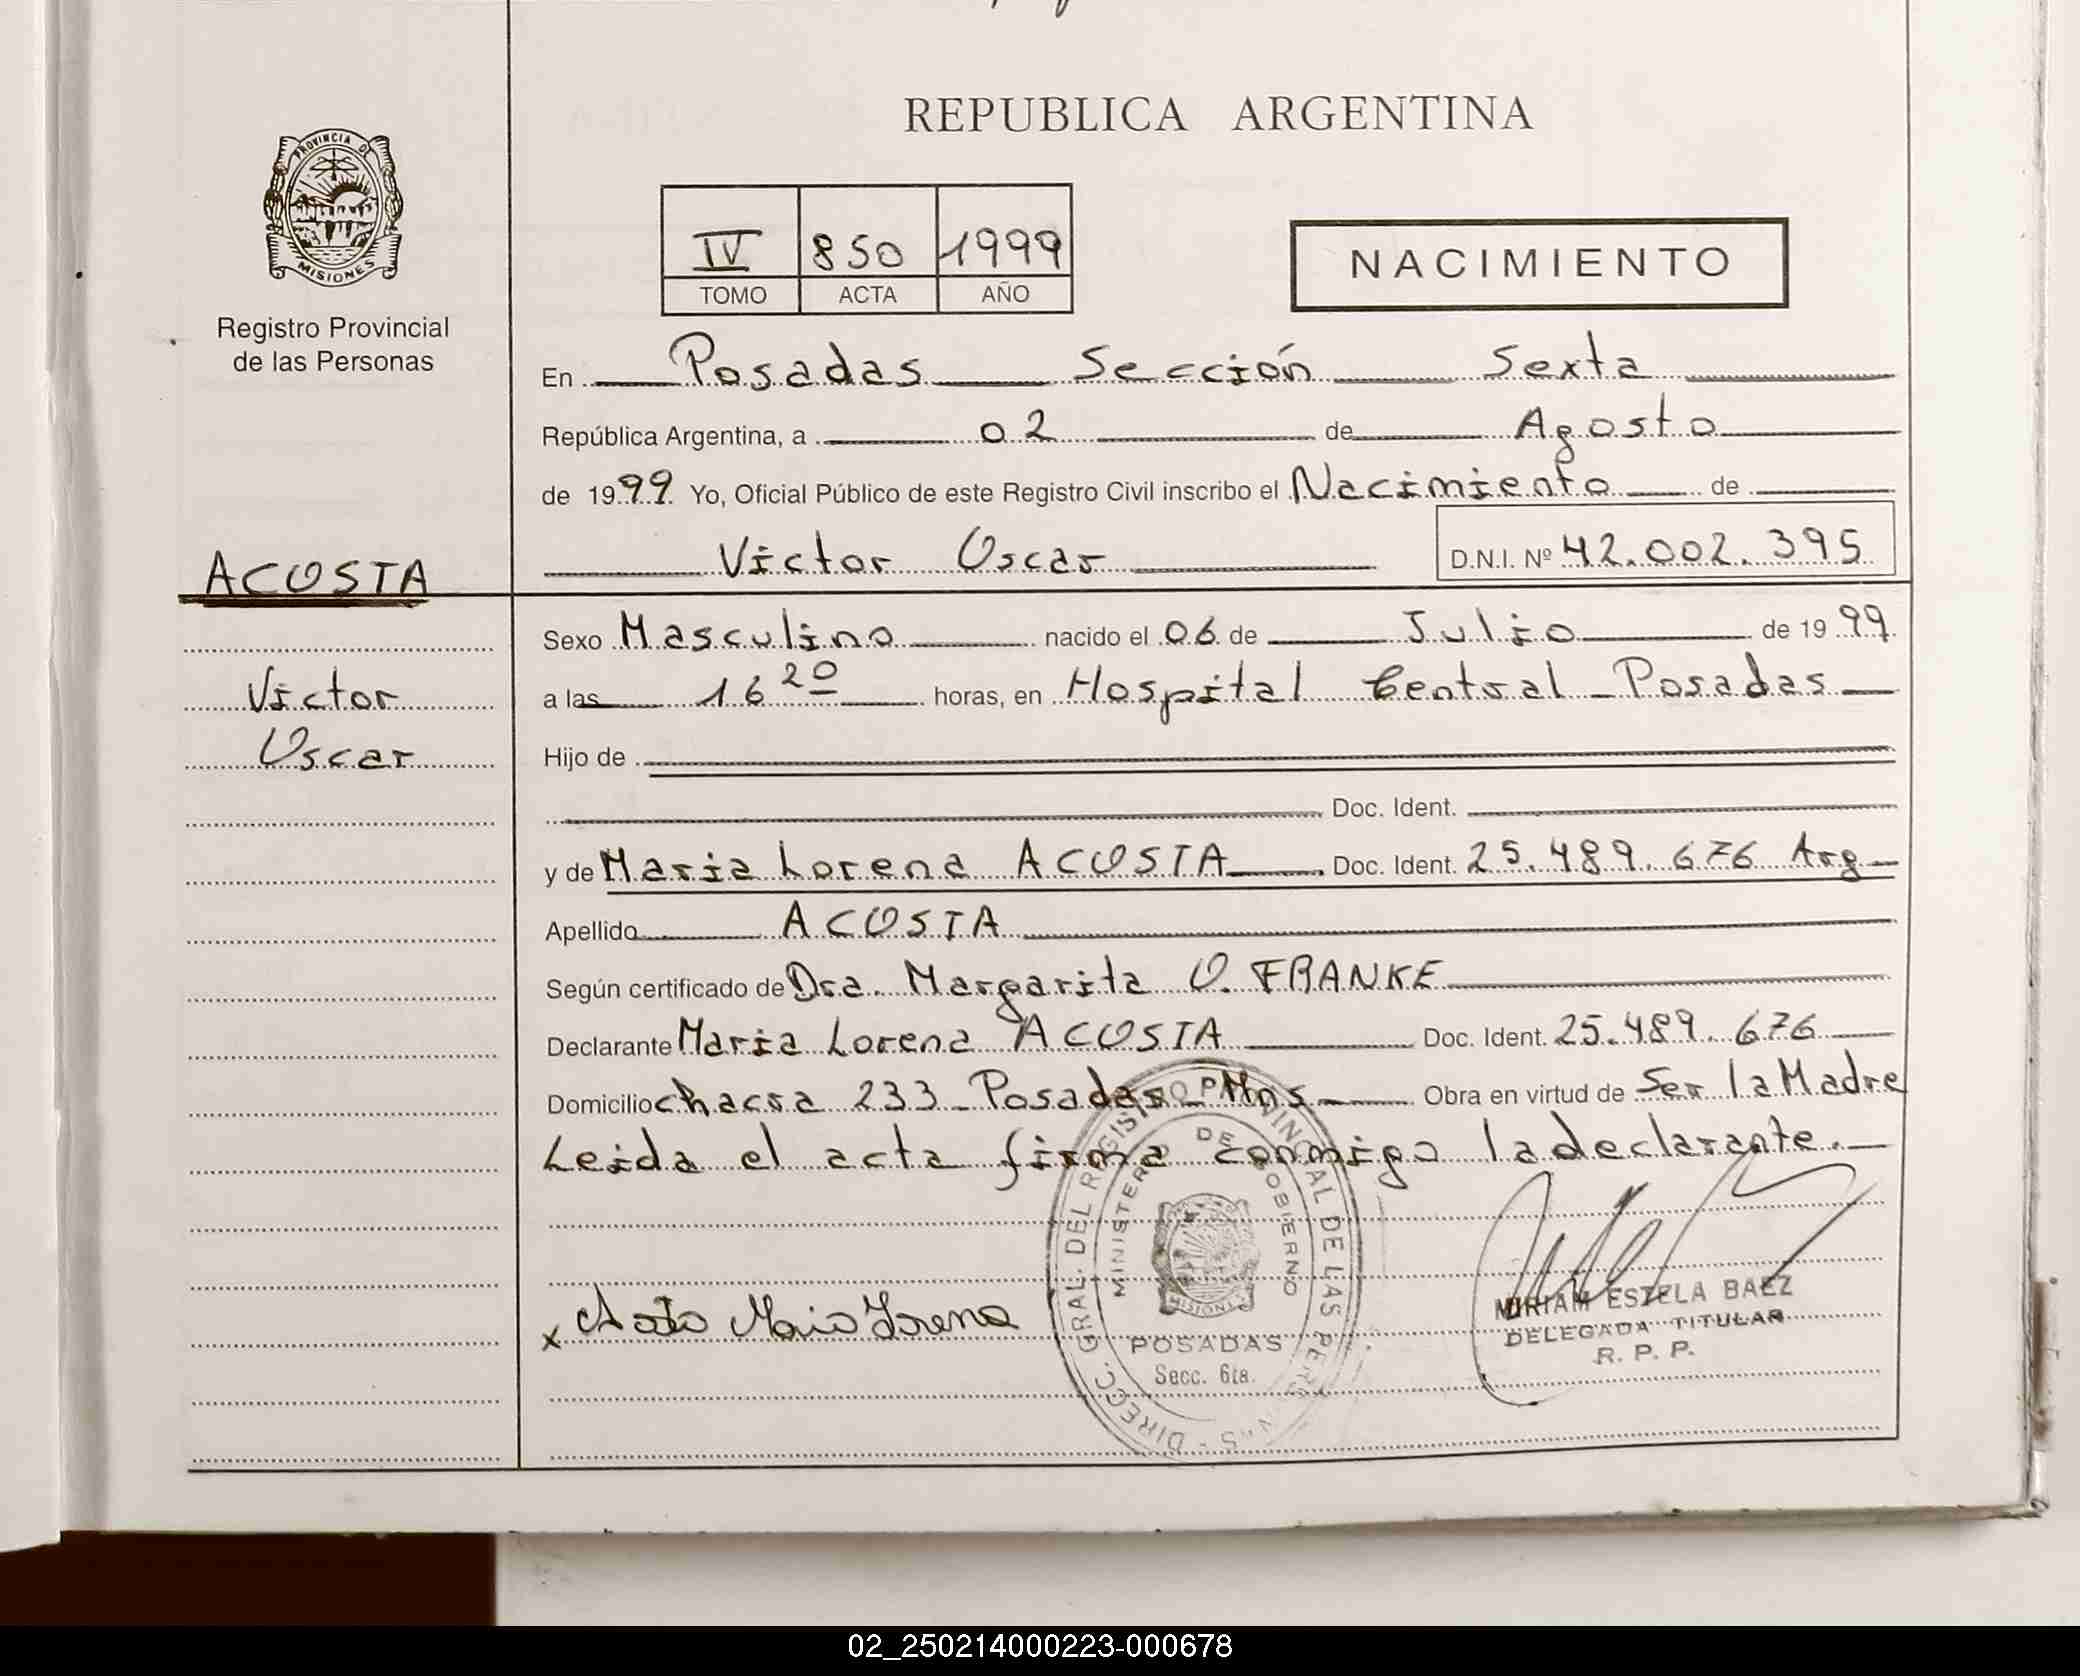 REPUBLICA ARGENTINA
PROVINCIA DE
MISIONES
Registro Provincial
de las Personas
IV 850 1999
TOMO ACTA AÑO
NACIMIENTO
En Posadas Sección Sexta
República Argentina, a 02 de Agosto
de 1999 Yo, Oficial Público de este Registro Civil inscribo el Nacimiento de
Victor Oscar D.N.I. Nº 42.002.395
ACOSTA
Victor
Oscar
Sexo Masculino nacido el 06 de Julio de 1999
a las 16 20 horas, en Hospital Central - Posadas
Hijo de
Doc. Ident.
y de Maria Lorena ACOSTA Doc. Ident. 25.489.676 Arg
Apellido ACOSTA
Según certificado de Dra. Margarita O. FRANKE
Declarante Maria Lorena ACOSTA Doc. Ident. 25.489.676
Domicilio chacra 233 - Posadas - Mns Obra en virtud de Ser la Madre
Leida el acta firma conmigo la declarante.
DIRECC. GRAL. DEL REGISTRO PROVINCIAL DE LAS PERSONAS
MINISTERIO DE GOBIERNO
MISIONES
POSADAS
Secc. 6ta.
x Acosta Maria Lorena
MIRIAM ESTELA BAEZ
DELEGADA TITULAR
R. P. P.
02_250214000223-000678